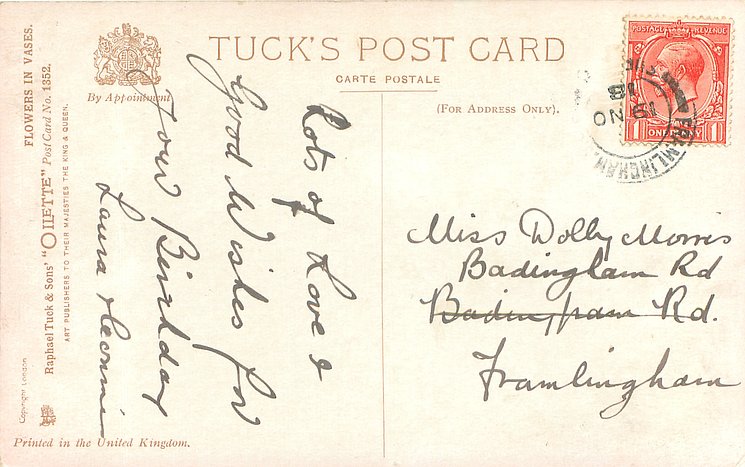 TUCK'S POST CARD
CARTE POSTALE
(FOR ADDRESS ONLY).
By Appointment
FLOWERS IN VASES.
Raphael Tuck & Sons' "OILETTE" Post Card No. 1352.
ART PUBLISHERS TO THEIR MAJESTIES THE KING & QUEEN.
Copyright London
Printed in the United Kingdom.
Lots of Love &
Good Wishes for
Your Birthday
Laura
Miss Dolly Morris
Badingham Rd
Badingham Rd.
Framlingham
POSTAGE REVENUE
ONE PENNY
1 1
FRAMLINGHAM.
19 NO
18